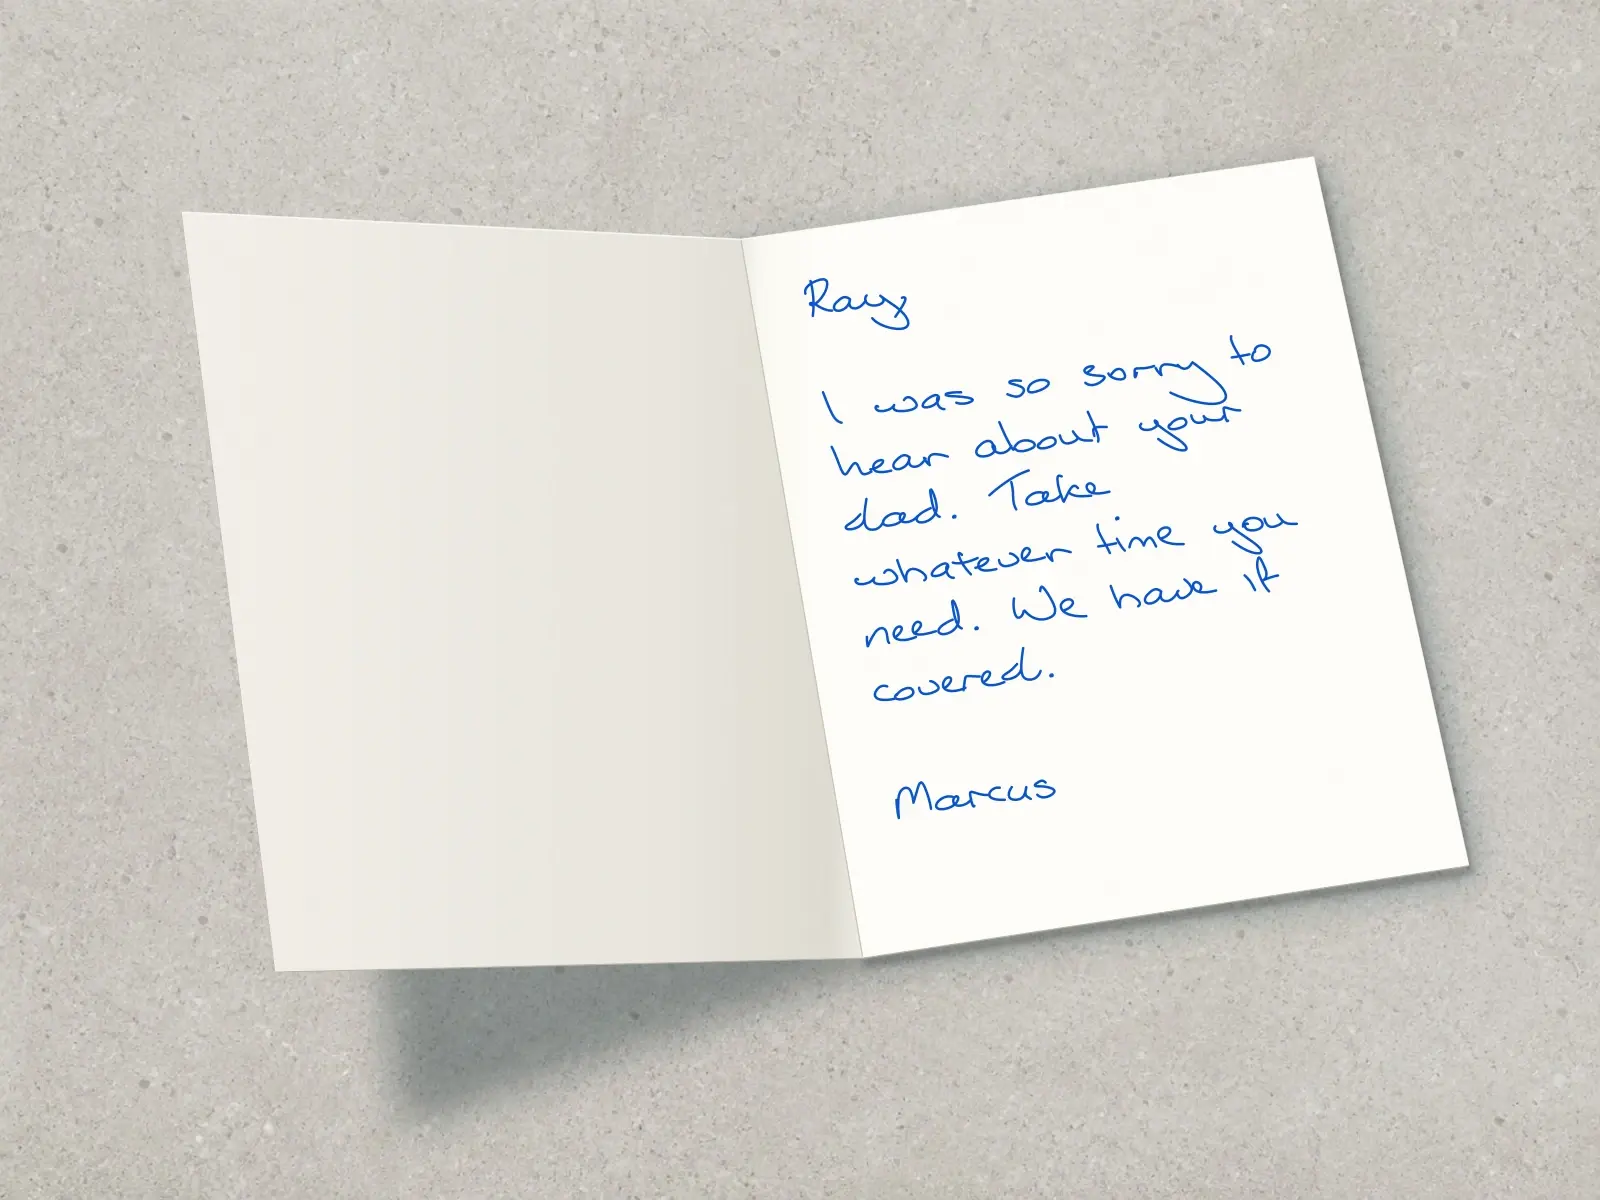 Ray
I was so sorry to
hear about your
dad. Take
whatever time you
need. We have it
covered.
Marcus